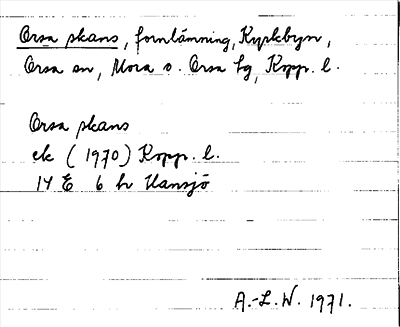 Orsa skans, fornlämning, Kyrkbyn,
Orsa sn, Mora o. Orsa tg, Kopp. l.
Orsa skans
ek (1970) Kopp. l.
14 E 6 h Hansjö
A.-L.W. 1971.